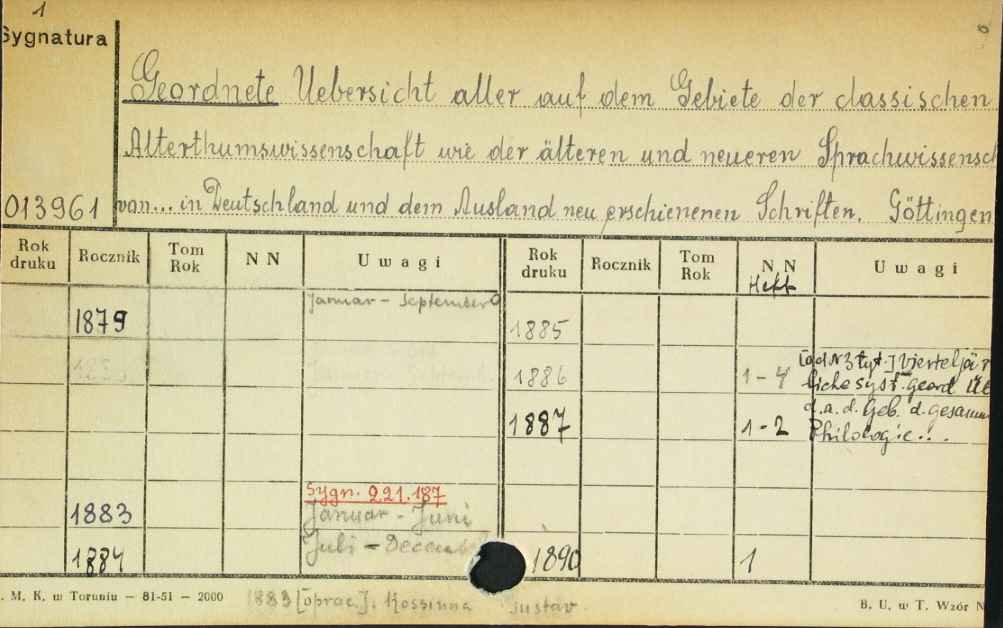 1
Sygnatura
Geordnete Uebersicht aller auf dem Gebiete der classischen
Alterthumswissenschaft wie der älteren und neueren Sprachwissensch
013961 von... in Deutschland und dem Ausland neu erschienenen Schriften. Göttingen
Rok druku Rocznik Tom Rok N N Uwagi Rok druku Rocznik Tom Rok N N Heft Uwagi
1879 Januar - September 1885
1886 1-4 [od Nr 3 tyt.] Vierteljär
liche syst. geord. Üb
1887 1-2 d.a.d. Geb. d. gesamm
Philologie...
Sygn. 221.187
1883 Januar - Juni
1884 Juli - Decemb 1890 1
. M. K. w Toruniu — 81-51 — 2000 1883 [oprac.]: Kossinna Gustav. B. U. w T. Wzór N